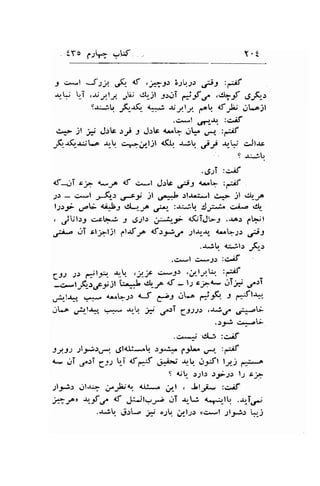 ۲۰۴ کتاب چهارم ۴۳۵
گفتم: وقتی دربارهٔ دوچیز، که یکی بزرگ است و
دیگری کوچک، می‌گوئیم آن‌دو ازیک نظر برابرند، آیا نباید
ازهمان نظر که باهم برابرند شبیه یکدیگر باشند؟
گفت: بدیهی است.
گفتم: پس میان جامعه عادل و فرد عادل نیز از حیث
عدالت نباید فرقی باشد بلکه ازاین‌جهت باید همانندیکدیگر
باشند ؟
گفت: آری.
گفتم: جامعه وقتی عادل است که هرسه جزء آن‌ـ‌که
هریک از حیث استعداد طبیعی از نوعی دیگر است ـ در
یک صفت مشترک باشند: یعنی هریک وظیفه خاص خودرا
انجام دهد. وحال‌آنکه خویشتن داری و شجاعت ودانائی ،
وقتی درجامعه پدیدار می‌شودکه هرکدام ازاجزاء آن صفتی
دیگر داشته باشد.
گفت: درست است.
گفتم: بنابراین، دوست عزیز، باید بتوانیم در روح
آدمی نیزآن سه‌جزء را ـ که هریک طبیعتاً ازنوعی‌دیگراست‌ـ
پیداکنیم و بگوئیم همان وضع که درجامعه سبب پیدایش
خاصیتی می‌شد، درروح آدمی نیز باید سبب پیدایش همان
خاصیت شود.
گفت: شک نیست.
گفتم: پس معلوم میشود بامسئله‌ای بس‌دشوار روبرو
هستیم زیرا اکنون باید تحقیق کنیم‌که آیا روح آدمی آن سه
جزء را درخود دارد یانه ؟
گفت: سقراط ، این مسئله به‌نظرمن چندان دشوار
نمی‌آید. بااینهمه شاید آن ضرب‌المثل که می‌گوید «هرچیز
زیبا دشوار است» دراین باره نیز صادق باشد.